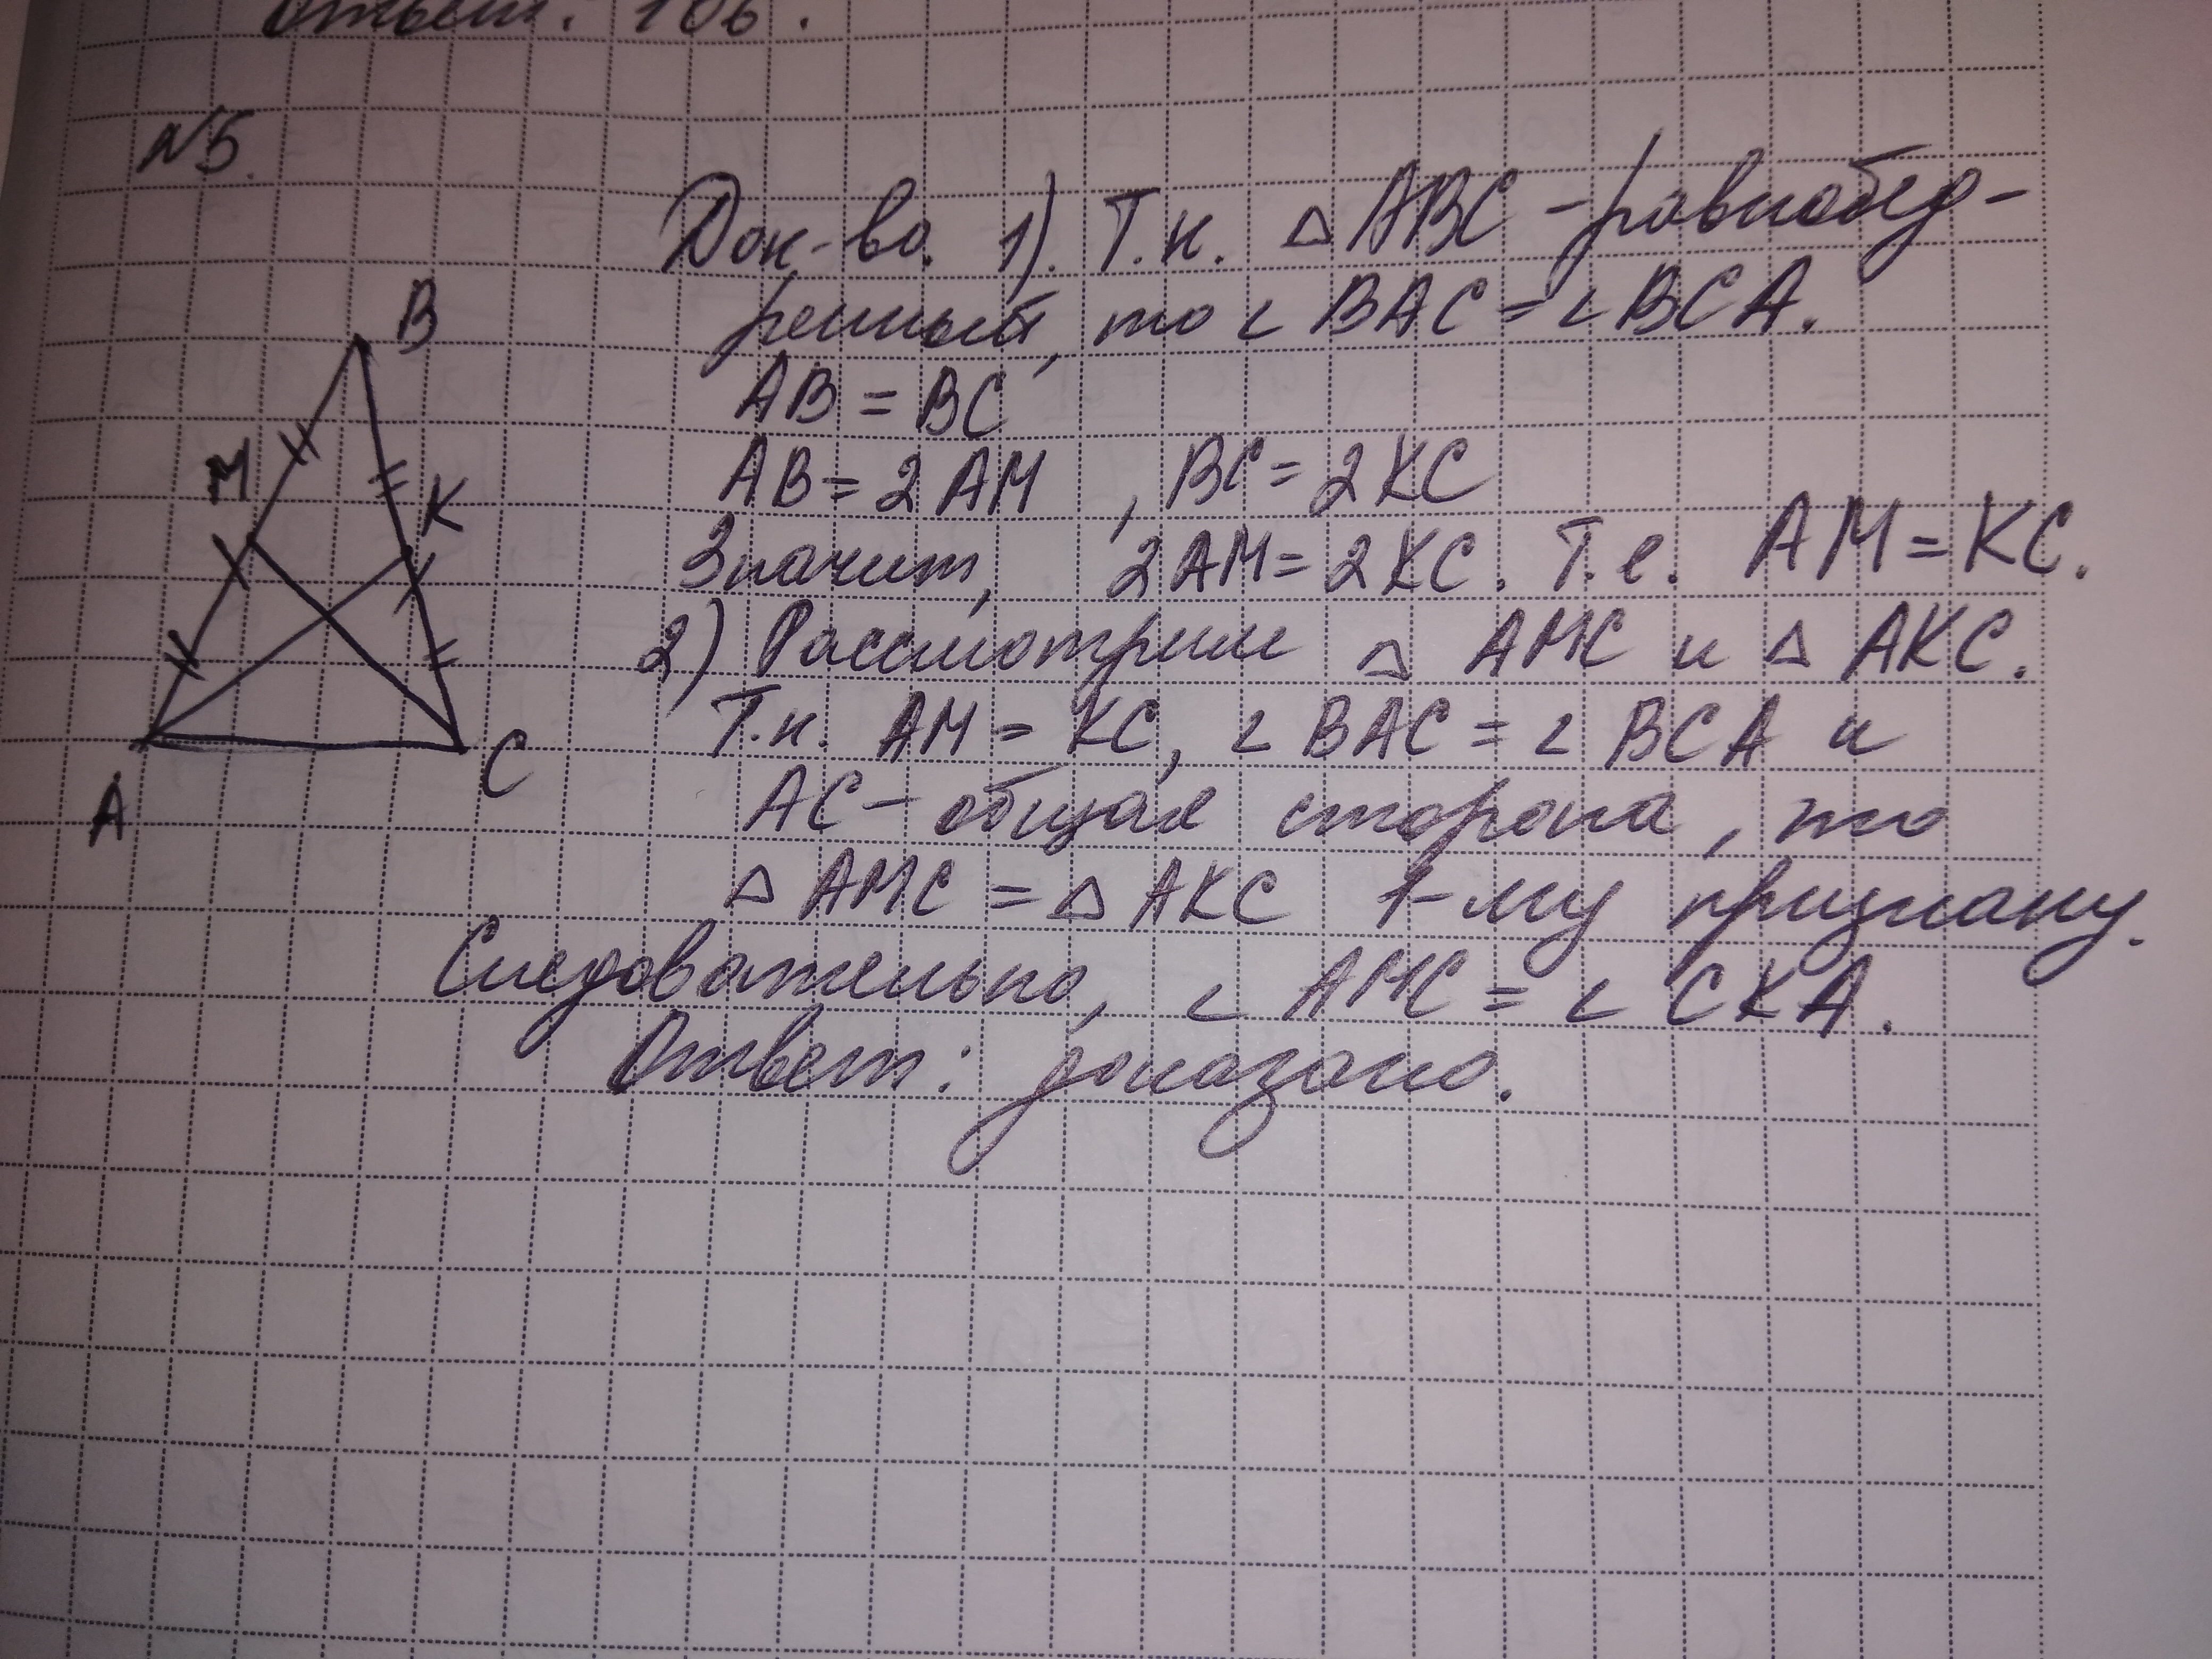 Ответ: 106.
№5.
Док-во. 1). Т.к. △ABC - равнобед-
ренный, то ∠BAC = ∠BCA.
B
AB = BC
M
AB = 2AM , BC = 2KC
K
Значит, 2AM = 2KC. Т.е. AM = KC.
2) Рассмотрим △ AMC и △ AKC.
Т.к. AM = KC, ∠BAC = ∠BCA и
C
AC - общая сторона, то
A
△ AMC = △ AKC 1-му признаку.
Следовательно, ∠ AMC = ∠ CKA.
Ответ: доказано.